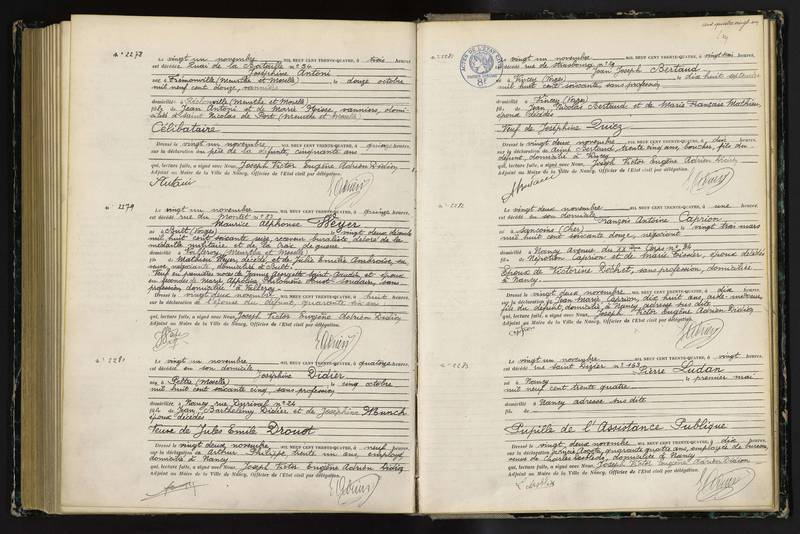 n° 2278
Le vingt un novembre MIL NEUF CENT TRENTE-QUATRE, à trois heures
est décédée Quai de la Bataille n° 34
Joséphine Antoni
née à Frémonville (Meurthe et Moselle) le douze octobre
mil neuf cent douze, vannière
domiciliée à (Meurthe et Moselle)
fille de Jean Antoni et de Marie Reisse vanniers, domi-
ciliés à Saint Nicolas de Port (Meurthe et Moselle)
Célibataire
Dressé le vingt un novembre, MIL NEUF CENT TRENTE-QUATRE, à quinze heures
sur la déclaration du père de la défunte, cinquante ans
qui, lecture faite, a signé avec Nous, Joseph Victor Eugène Adrien Didion
Adjoint au Maire de la Ville de Nancy, Officier de l'État civil par délégation.
n° 2279
Le vingt un novembre MIL NEUF CENT TRENTE-QUATRE, à quinze heures
est décédé rue du Montet n° 27
Maurice Alphonse Weyer
né à Bult (Vosges) le vingt deux décembre
mil huit cent soixante seize, receveur buraliste décoré de la
médaille militaire et de la Croix de guerre
domicilié à (Meurthe et Moselle)
fils de Mathieu Weyer décédé et de Julie Emélie Ambroise, sa
veuve, domiciliée à Bult.
Veuf en premières noces de Jeanne Georgette Saint-Gaudin et époux
en secondes de Marie Appoline Philomène sans
profession, domiciliée à
Dressé le vingt deux novembre MIL NEUF CENT TRENTE-QUATRE, à huit heures
sur la déclaration de du défunt, quarante six ans
qui, lecture faite, a signé avec Nous, Joseph Victor Eugène Adrien Didion
Adjoint au Maire de la Ville de Nancy, Officier de l'État civil par délégation.
n° 2280
Le vingt un novembre MIL NEUF CENT TRENTE-QUATRE, à quatorze heures
est décédée en son domicile
Joséphine Didier
née à Peltre (Moselle) le cinq octobre
mil huit cent soixante cinq, sans profession
domiciliée à Nancy rue Durival n° 26
fille de Jean Barthélemy Didier et de Joséphine Munch
époux décédés
Veuve de Jules Emile Drouot
Dressé le vingt deux novembre, MIL NEUF CENT TRENTE-QUATRE, à neuf heures
sur la déclaration de Arthur Philippe, trente un ans, employé
domicilié à Nancy
qui, lecture faite, a signé avec Nous, Joseph Victor Eugène Adrien Didion
Adjoint au Maire de la Ville de Nancy, Officier de l'État civil par délégation.
n° 2281
Le vingt un novembre MIL NEUF CENT TRENTE-QUATRE, à vingt trois heures
est décédé rue de Strasbourg n°
Jean Joseph Bertaud
né à Vincey (Vosges) le dix huit septembre
mil huit cent soixante, sans profession
domicilié à Vincey (Vosges)
fils de Jean Nicolas Bertaud et de Marie Française Mathieu,
époux décédés
Veuf de Joséphine
Dressé le vingt deux novembre MIL NEUF CENT TRENTE-QUATRE, à heures
sur la déclaration de Bertaud, trente cinq ans, boucher, fils du
défunt, domicilié à Vincey
qui, lecture faite, a signé avec Nous, Joseph Victor Eugène Adrien Didion
Adjoint au Maire de la Ville de Nancy, Officier de l'État civil par délégation.
n° 2282
Le vingt deux novembre MIL NEUF CENT TRENTE-QUATRE, à une heure
est décédé en son domicile
François Antoine Caprion
né à Sancoins (Cher) le vingt trois mars
mil huit cent soixante douze, négociant
domicilié à Nancy Avenue du XXème Corps n° 34
fils de Népotien Caprion et de Marie époux décédés
Epoux de Victorine Rochet, sans profession, domiciliée
à Nancy
Dressé le vingt deux novembre MIL NEUF CENT TRENTE-QUATRE, à dix heures
sur la déclaration de Jean Marie Caprion, dix huit ans,
fils du défunt, domicilié à Nancy, adresse sus dite
qui, lecture faite, a signé avec Nous, Joseph Victor Eugène Adrien Didion
Adjoint au Maire de la Ville de Nancy, Officier de l'État civil par délégation.
n° 2283
Le vingt un novembre MIL NEUF CENT TRENTE-QUATRE, à vingt heures
est décédé rue Saint Dizier n° 163
Pierre Ludan
né à Nancy le premier mai
mil neuf cent trente quatre
domicilié à Nancy adresse sus dite
fils de
Pupille de l'Assistance Publique
Dressé le vingt deux novembre MIL NEUF CENT TRENTE-QUATRE, à dix heures
sur la déclaration de quarante quatre ans, employée de bureau,
veuve de Charles domiciliée à Nancy
qui, lecture faite, a signé avec Nous, Joseph Victor Eugène Adrien Didion
Adjoint au Maire de la Ville de Nancy, Officier de l'État civil par délégation.